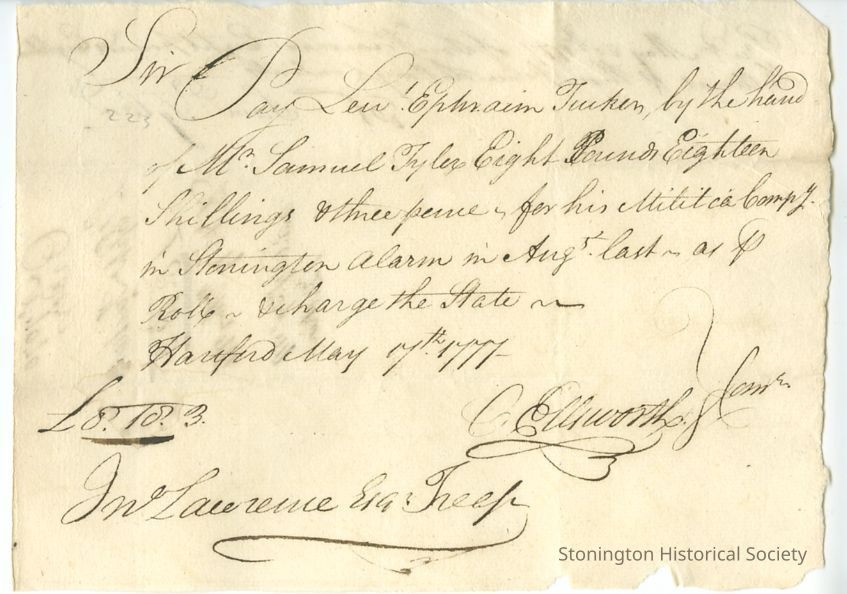 Sir
Pay Leu.t Ephraim Tucker, by the hand
of Mr. Samuel Tyler Eight Pounds Eighteen
Shillings & three pence for his Militia Compy.
in Stonington Alarm in Augst. last ~ as ⅌
Roll ~ & charge the State ~
Hartford May 17th. 1777
£8. 18. 3.
O. Ellsworth Comtee
Jno Lawrence Esqr. Treasr
223
Stonington Historical Society